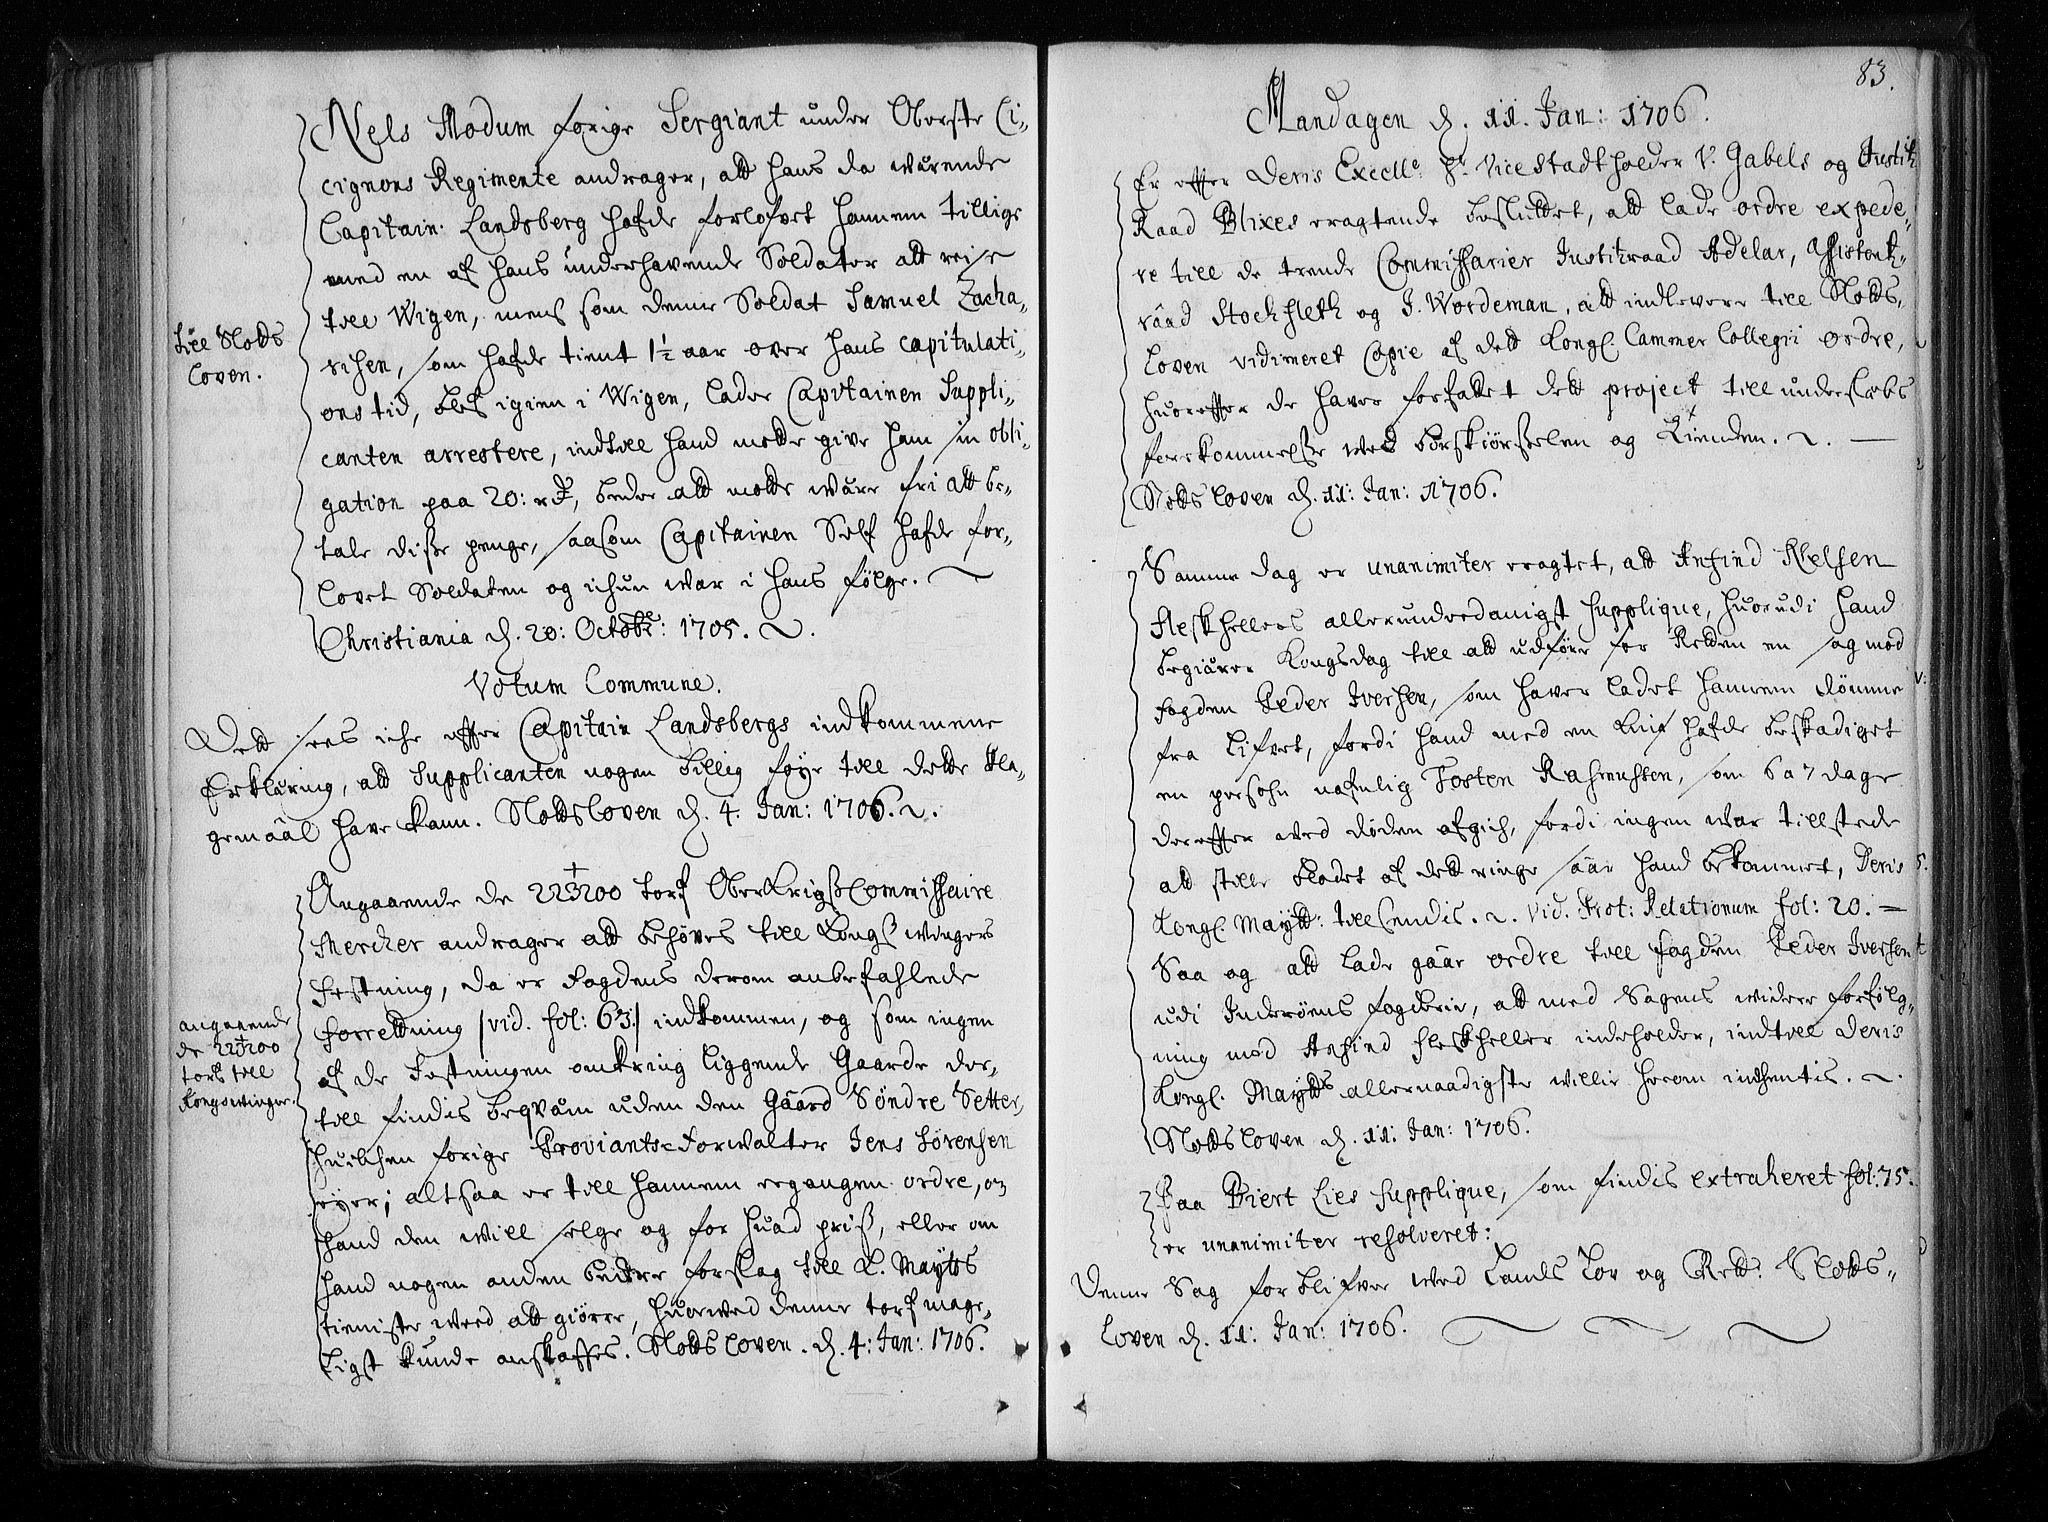 Nels Modum forige Sergiant under Oberste Ci-
cignons Regimente andrager, att hans da wærende
Capitain: Landsberg hafde forlofvet hannem tillige
med en af hans underhavende Soldater att reise
till Wigen, mens som denne Soldat Samuel Zacha-
till Slods
richsen, som hafde tient 1½ aar over hans capitulati-
loven.
ons tid, blef igien i Wigen, lader Capitainen Suppli-
canten arrestere, indtill hand motte give ham sin obli-
gation paa 20: rd, beder att motte være fri att be-
tale disse penge, saasom Capitainen Self hafde for-
lovet Soldaten og ichun war i hans følge.
Christiania d. 20: Octobr: 1705.
Votum Commune.
Dett sees iche effter Capitain Landsbergs indkommene
Erklæring, att Supplicanten nogen billig føye till dette kla-
gemaal have kann. Slodsloven d. 4. Jan: 1706.
Angaaende de 223200 torf OberKrigsCommissaire
Mercker andrager att behøves till Kongs Wingers
festning, da er fogdens derom anbefahlede
forretning /vid. fol: 63/ indkommen, og som ingen
angaaende
de 223200
torf till
Kongswinger.
af de festningen omkring liggende Gaarde der-
till findis beqvæm uden den Gaard Søndre Setter,
huilchen forige Proviants-forwalter Jens Sørensen
eyer; altsaa er till hannem ergangen ordre, om
hand den will selge og for huad priis, eller om
hand nogen anden bedre forslag till K. Maytts
tieniste weed att giøre, huorved denne torf mage-
ligst kunde anskaffes. Slodsloven. d. 4: Jan: 1706.
83.
Mandagen d. 11. Jan: 1706.
Er effter Deris Excelle: Hr. ViceStadtholder V. Gabels og Justitz
Raad Blixes eragtende besluttet, att lade ordre expede-
re till de trende Commissarier Justitzraad Adelar, Assistentz-
raad Stockfleth og J. Wordeman, att indlevere till Slods-
loven vidimeret Copie af dett Kongl. Cammer Collegii ordre,
huoreffter de haver forfattet dett project till underslæbs
forekommelse ved Borskiørselen og Tienden.
Slodsloven d. 11: Jan: 1706.
Samme dag er unanimiter eragtet, att Anfind Nelsen
Fleskhellers allerunderdanigst Supplique, huorudi hand
begiærer Kongsdag till att udføre for Retten en sag mod
fogden Peder Iversen, som haver ladet hannem dømme
fra lifvet, fordi hand med en knif hafde beskadiget
en persohn nafnlig Tosten Rasmussen, som 6 a 7 dage
dereffter ved døden afgich, fordi ingen war tillstede
att stille blodet af dett ringe saar hand bekommet, Deris
Kongl. Maytt: tillsendis. Vid. Prot: Relationum fol: 20.
Saa og att lade gaar ordre till fogden Peder Iversen
udi Inderøens fogderie, att med Sagens widere forfølg-
ning mod Anfind Fleskheller indeholder, indtill Deris
Kongl. Maytts allernaadigste willie herom indhentis.
Slodsloven d. 11: Jan: 1706.
Paa Biert Lies Supplique, som findis extraheret fol: 75.
er unanimiter resolveret:
Denne Sag forblifver wed Lands Lov og Rett. Slods-
loven d. 11: Jan: 1706.